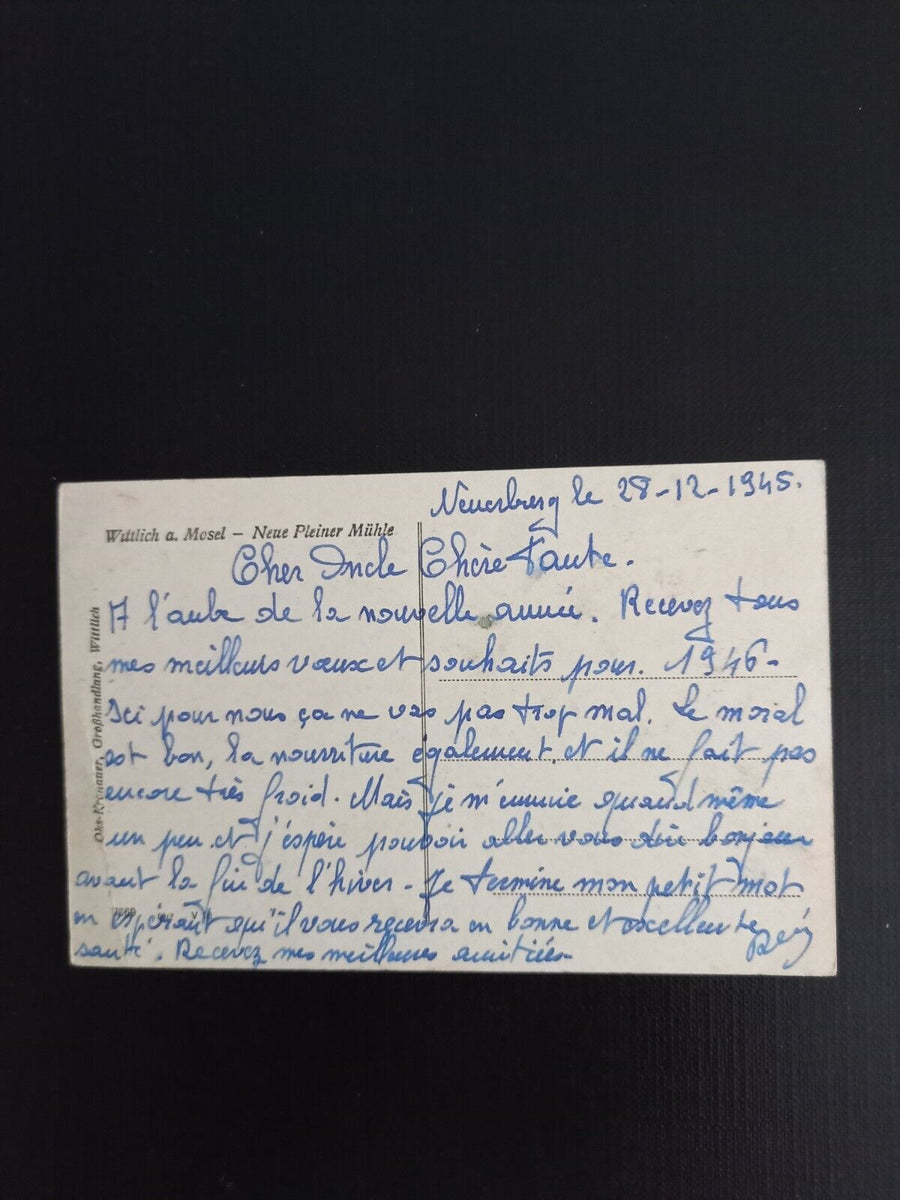 Neuerberg le 28-12-1945.
Wittlich a. Mosel — Neue Pleiner Mühle
Cher Oncle Chère Tante.
A l'aube de la nouvelle année. Recevez tous
mes meilleurs vœux et souhaits pour. 1946-
Ici pour nous ça ne vas pas trop mal. Le moral
est bon, la nourriture également. et il ne fait pas
encore très froid. Mais je m'ennuie quand même
un peu et j'espère pouvoir aller vous dire bonjour
avant la fin de l'hiver - Je termine mon petit mot
en espérant qu'il vous recevra en bonne et excellente
santé. Recevez mes meilleures amitiées-
Ohs-Kronauer, Großhandlung, Wittlich